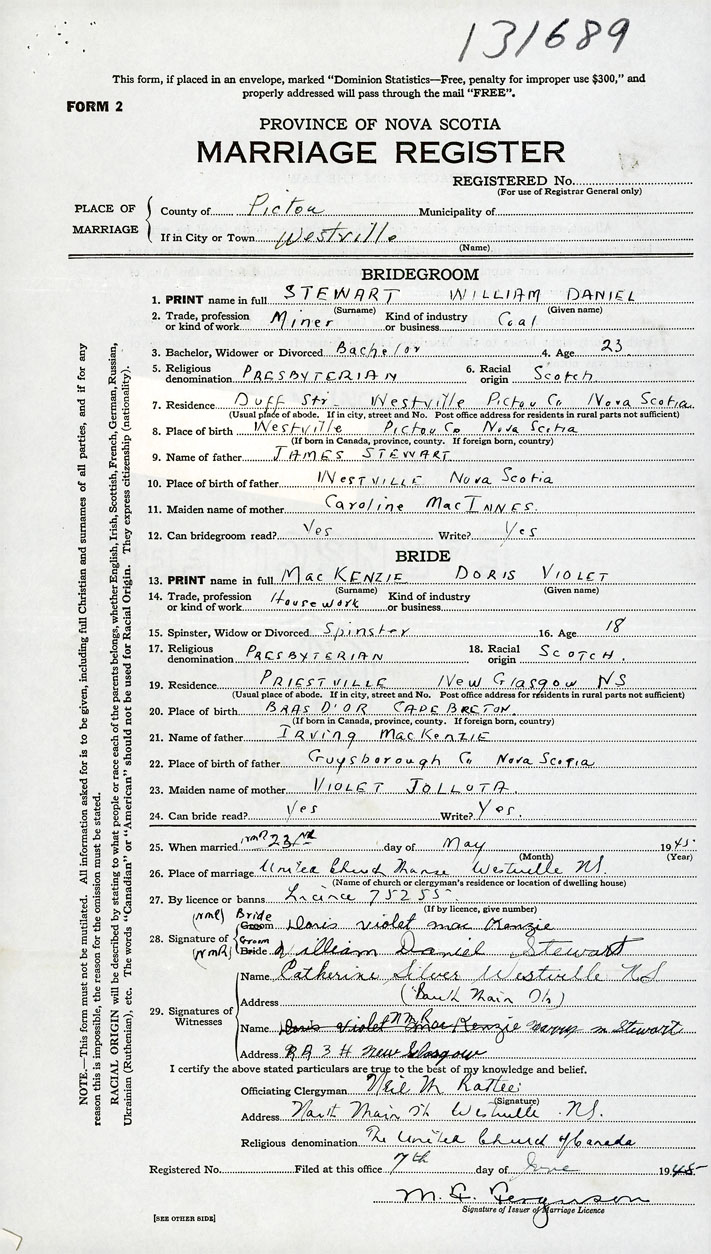 131689
This form, if placed in an envelope, marked “Dominion Statistics—Free, penalty for improper use $300,” and
properly addressed will pass through the mail “FREE”.
FORM 2
PROVINCE OF NOVA SCOTIA
MARRIAGE REGISTER
REGISTERED No.
(For use of Registrar General only)
PLACE OF MARRIAGE
County of Pictou Municipality of
If in City or Town Westville
(Name)
BRIDEGROOM
1. PRINT name in full STEWART WILLIAM DANIEL
(Surname) (Given name)
2. Trade, profession or kind of work Miner Kind of industry or business Coal
3. Bachelor, Widower or Divorced Bachelor 4. Age 23
5. Religious denomination PRESBYTERIAN 6. Racial origin Scotch
7. Residence Duff Str. Westville Pictou Co Nova Scotia
(Usual place of abode. If in city, street and No. Post office address for residents in rural parts not sufficient)
8. Place of birth Westville Pictou Co Nova Scotia
(If born in Canada, province, county. If foreign born, country)
9. Name of father JAMES STEWART
10. Place of birth of father WESTVILLE Nova Scotia
11. Maiden name of mother Caroline MacINNES.
12. Can bridegroom read? Yes Write? Yes
BRIDE
13. PRINT name in full MacKENZIE DORIS VIOLET
(Surname) (Given name)
14. Trade, profession or kind of work Housework Kind of industry or business
15. Spinster, Widow or Divorced Spinster 16. Age 18
17. Religious denomination PRESBYTERIAN 18. Racial origin SCOTCH.
19. Residence PRIESTVILLE New Glasgow NS
(Usual place of abode. If in city, street and No. Post office address for residents in rural parts not sufficient)
20. Place of birth BRAS D'OR CAPE BRETON
(If born in Canada, province, county. If foreign born, country)
21. Name of father Irving MacKenzie
22. Place of birth of father Guysborough Co Nova Scotia
23. Maiden name of mother VIOLET JOLLOTA.
24. Can bride read? Yes Write? Yes.
25. When married NMR 23rd day of May 1945.
(Month) (Year)
26. Place of marriage United Church Manse Westville NS.
(Name of church or clergyman's residence or location of dwelling house)
27. By licence or banns Licence 75255
(If by licence, give number)
28. Signature of
(NMR) Bride Groom Doris Violet Mac Kenzie
(NMR) Groom Bride William Daniel Stewart
29. Signatures of Witnesses
Name Catherine Silver Westville NS
Address (South Main St)
Name Doris Violet NMR MacKenzie m Stewart
Address RR 3 H New Glasgow
I certify the above stated particulars are true to the best of my knowledge and belief.
Officiating Clergyman Neil M Rattee
(Signature)
Address North Main St Westville NS.
Religious denomination The United Church of Canada
Registered No. Filed at this office 7th day of June 1945
M. F. Ferguson
Signature of Issuer of Marriage Licence
[SEE OTHER SIDE]
NOTE.—This form must not be mutilated. All information asked for is to be given, including full Christian and surnames of all parties, and if for any
reason this is impossible, the reason for the omission must be stated.
RACIAL ORIGIN will be described by stating to what people or race each of the parents belongs, whether English, Irish, Scottish, French, German, Russian,
Ukrainian (Ruthenian), etc. The words “Canadian” or “American” should not be used for Racial Origin. They express citizenship (nationality).